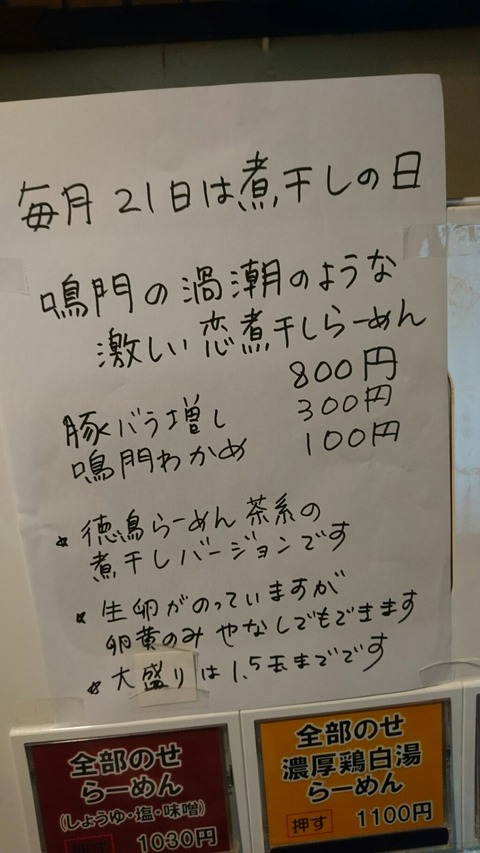 毎月21日は煮干しの日
鳴門の渦潮のような
激しい恋煮干しらーめん
800円
豚バラ増し 300円
鳴門わかめ 100円
* 徳島らーめん茶系の
煮干しバージョンです
* 生卵がのっていますが
卵黄のみやなしでもできます
* 大盛りは1.5玉までです
全部のせ
らーめん
(しょうゆ・塩・味噌)
押す 1030円
全部のせ
濃厚鶏白湯
らーめん
押す 1100円